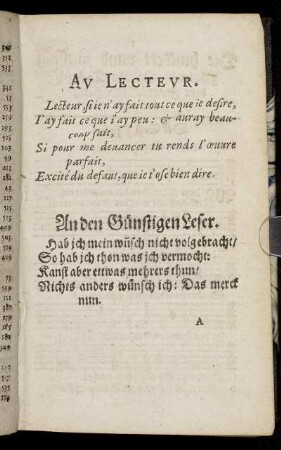 AV LECTEVR.
Lecteur, si ie n'ay fait tout ce que ie desire,
I'ay fait ce que i'ay peu: & auray beau-
coup fait,
Si pour me deuancer tu rends l'œuure
parfait,
Excité du defaut, que ie t'ose bien dire.
An den Günstigen Leser.
Hab ich mein wüsch nicht volgebracht/
So hab ich thon was ich vermocht:
Kanst aber ettwas mehrers thun/
Nichts anders wünsch ich: Das merck
nun.
A